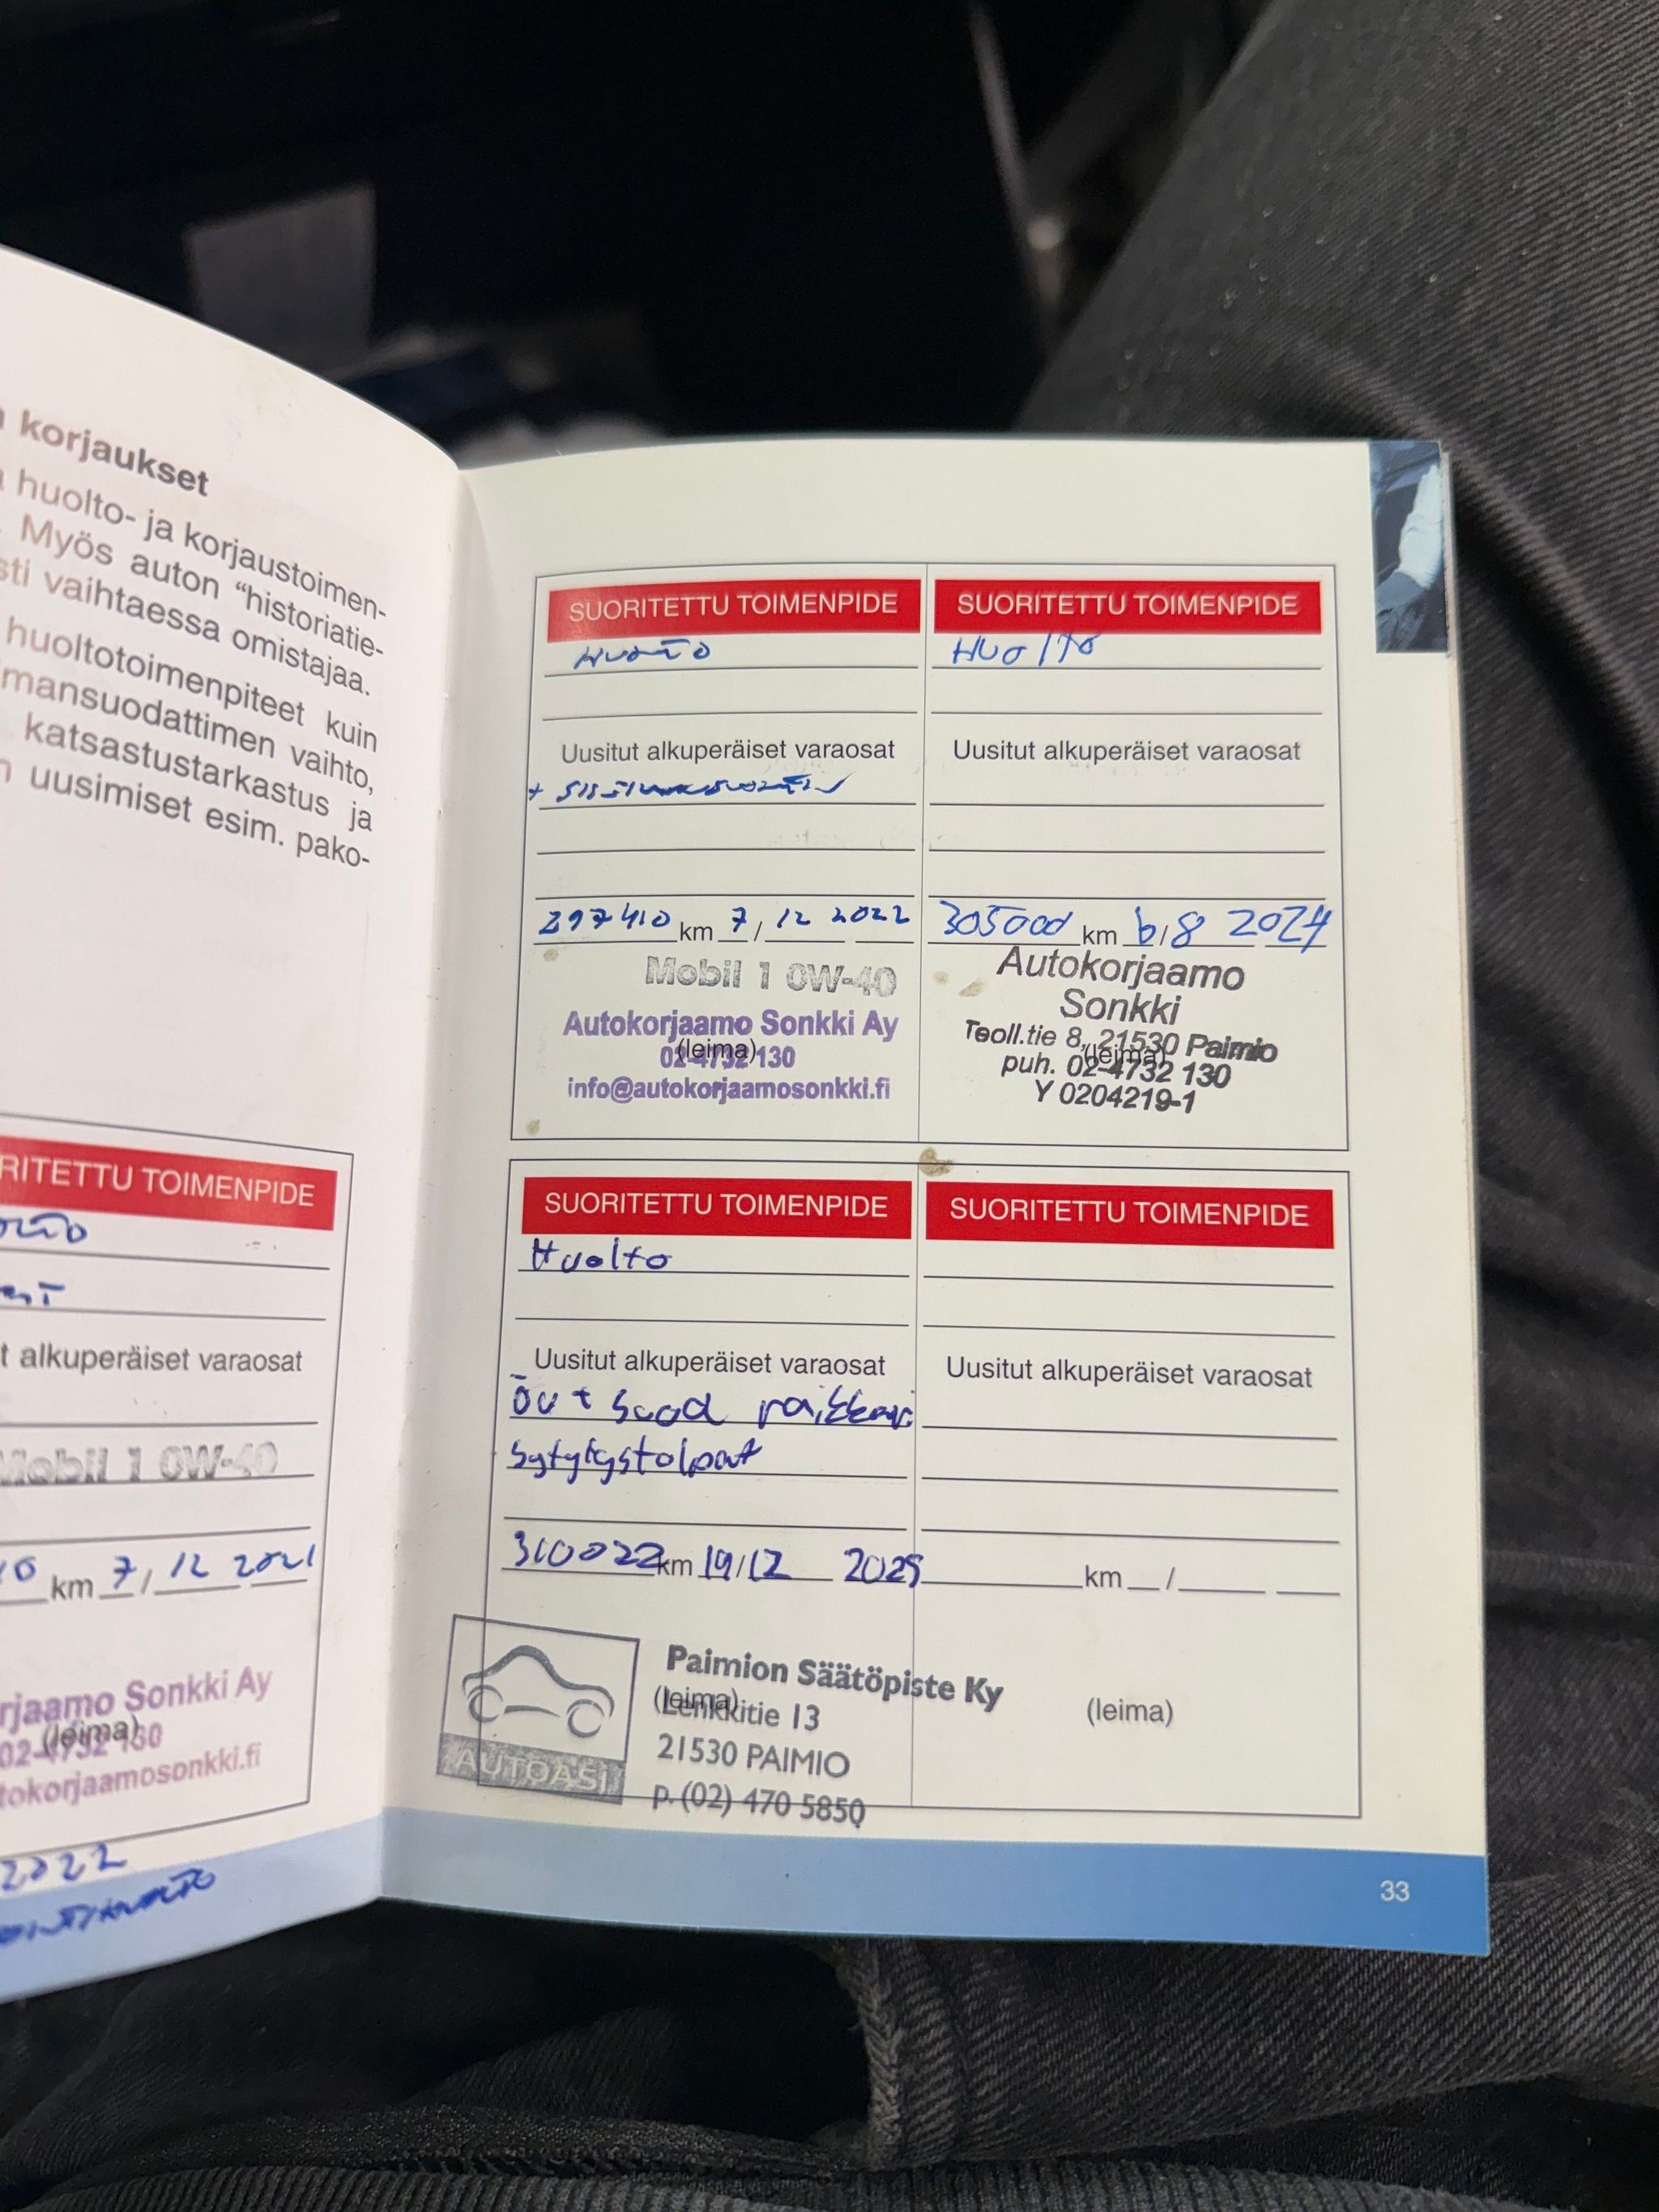 korjaukset
huolto- ja korjaustoimen-
Myös auton "historiatie-
vaihtaessa omistajaa.
huoltotoimenpiteet kuin
katsastustarkastus ja
uusimiset esim. pako-
TOIMENPIDE
alkuperäiset varaosat
Mobil 1 0W-40
km 7/12 2021
Sonkki Ay
(leima)
2022
SUORITETTU TOIMENPIDE
Huolto
Uusitut alkuperäiset varaosat
297410 km 7/12 2022
Mobil 1 0W-40
Autokorjaamo Sonkki Ay
(leima)
02-4732 130
info@autokorjaamosonkki.fi
SUORITETTU TOIMENPIDE
Huolto
Uusitut alkuperäiset varaosat
305000 km 6/8 2024
Autokorjaamo
Sonkki
Teoll.tie 8, 21530 Paimio
(leima)
puh. 02-4732 130
Y 0204219-1
SUORITETTU TOIMENPIDE
Huolto
Uusitut alkuperäiset varaosat
öv + suod
310022 km 19/12 2025
AUTOASI
Paimion Säätöpiste Ky
(leima)
Lenkkitie 13
21530 PAIMIO
p. (02) 470 5850
SUORITETTU TOIMENPIDE
Uusitut alkuperäiset varaosat
km /
(leima)
33